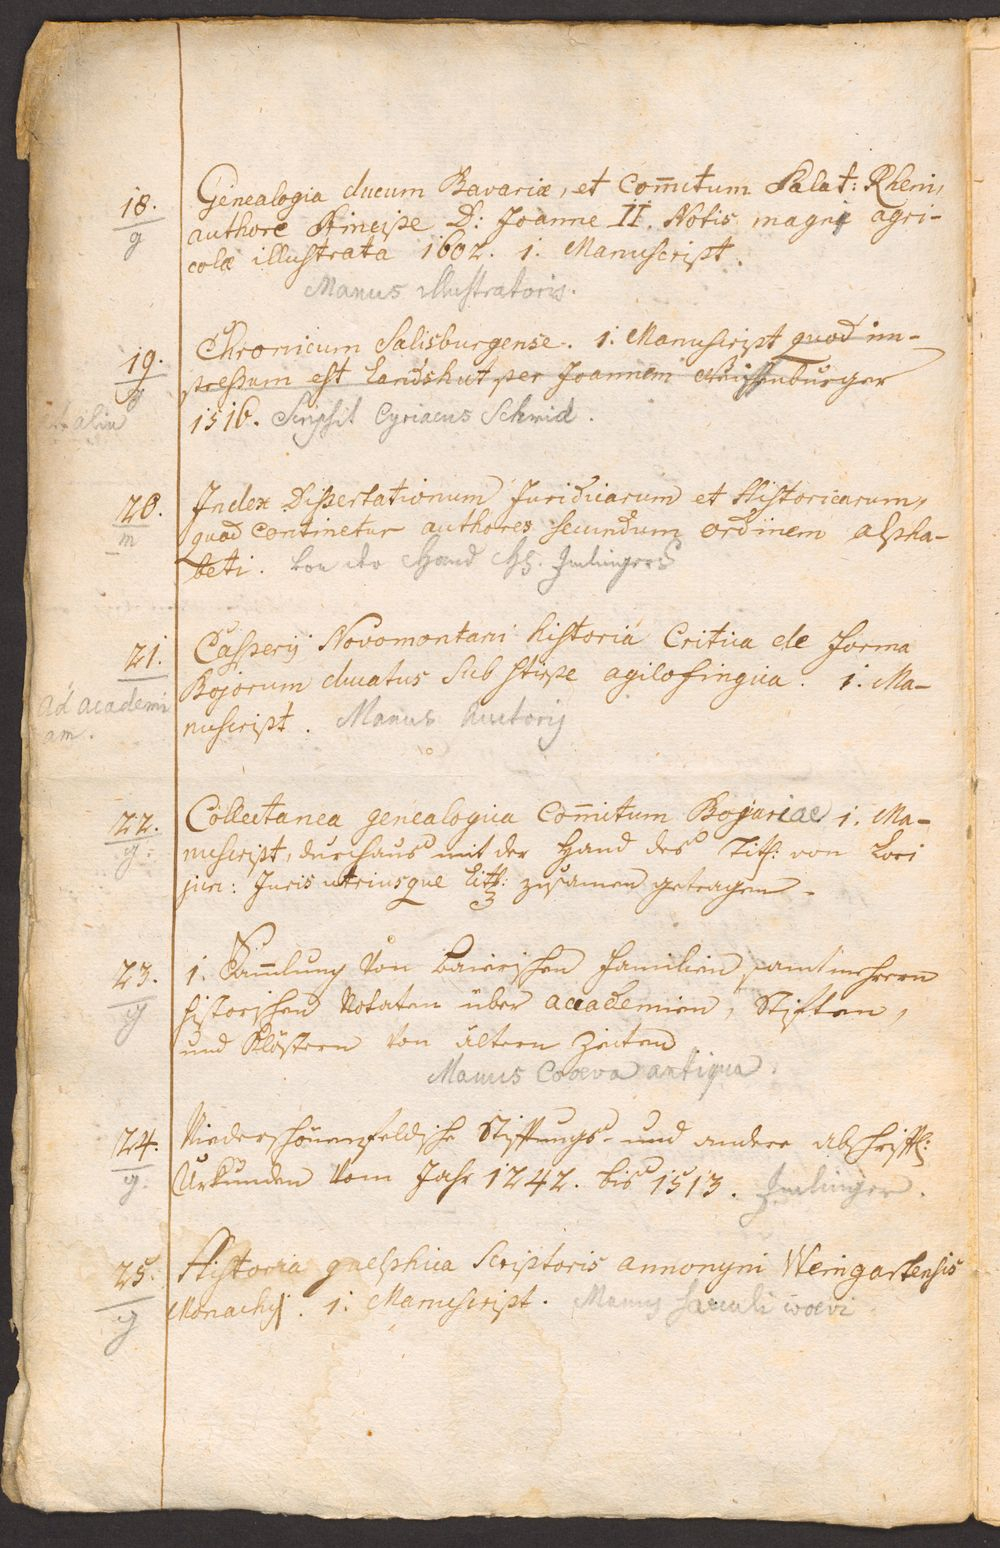 18.
g
Genealogia ducum Bavariæ, et Com̅itum Palat: Rheni,
authore Principe D: Joanne II. Notis magni agri-
colæ illustrata 1602. 1. Manuscript.
Manus illustratoris.
19.
g
Chronicum Salisburgense. 1. Manuscript quod im-
pressum est Landshut per Joannem Weissenburger
1516. Scripsit Cyriacus Schmid.
alia
20.
m
Index Dissertationum Juridicarum et Historicarum,
quod continetur authores secundum ordinem alpha-
beti. Von der Hand H. Imlingers
21.
ad academi
am.
Casperij Novomontani historia Critica de forma
Bojorum ducatus sub stirpe agilofingica. 1. Ma-
nuscript. Manus Auctorij
22.
g.
Collectanea genealogica Com̅itum Bojariae 1. Ma-
nuscript, durchaus mit der Hand des Titl: von Lori
jun: Juris utriusque Litt: zusamen getragen.
23.
g
1. Sam̅lung von bairischen familien samt mehrern
historischen Notaten über academien, Stiften,
und Klöstern von ältern Zeiten
Manus Coaeva antiqua.
24.
g.
Niederschönenfeldische Stiftungs- und andere abschriftl:
Urkunden vom Jahr 1242. bis 1513. Imlinger.
25.
g
Historia guelphica Scriptoris annonymi Weingartensis
Monachi. 1. Manuscript. Manus saeculi